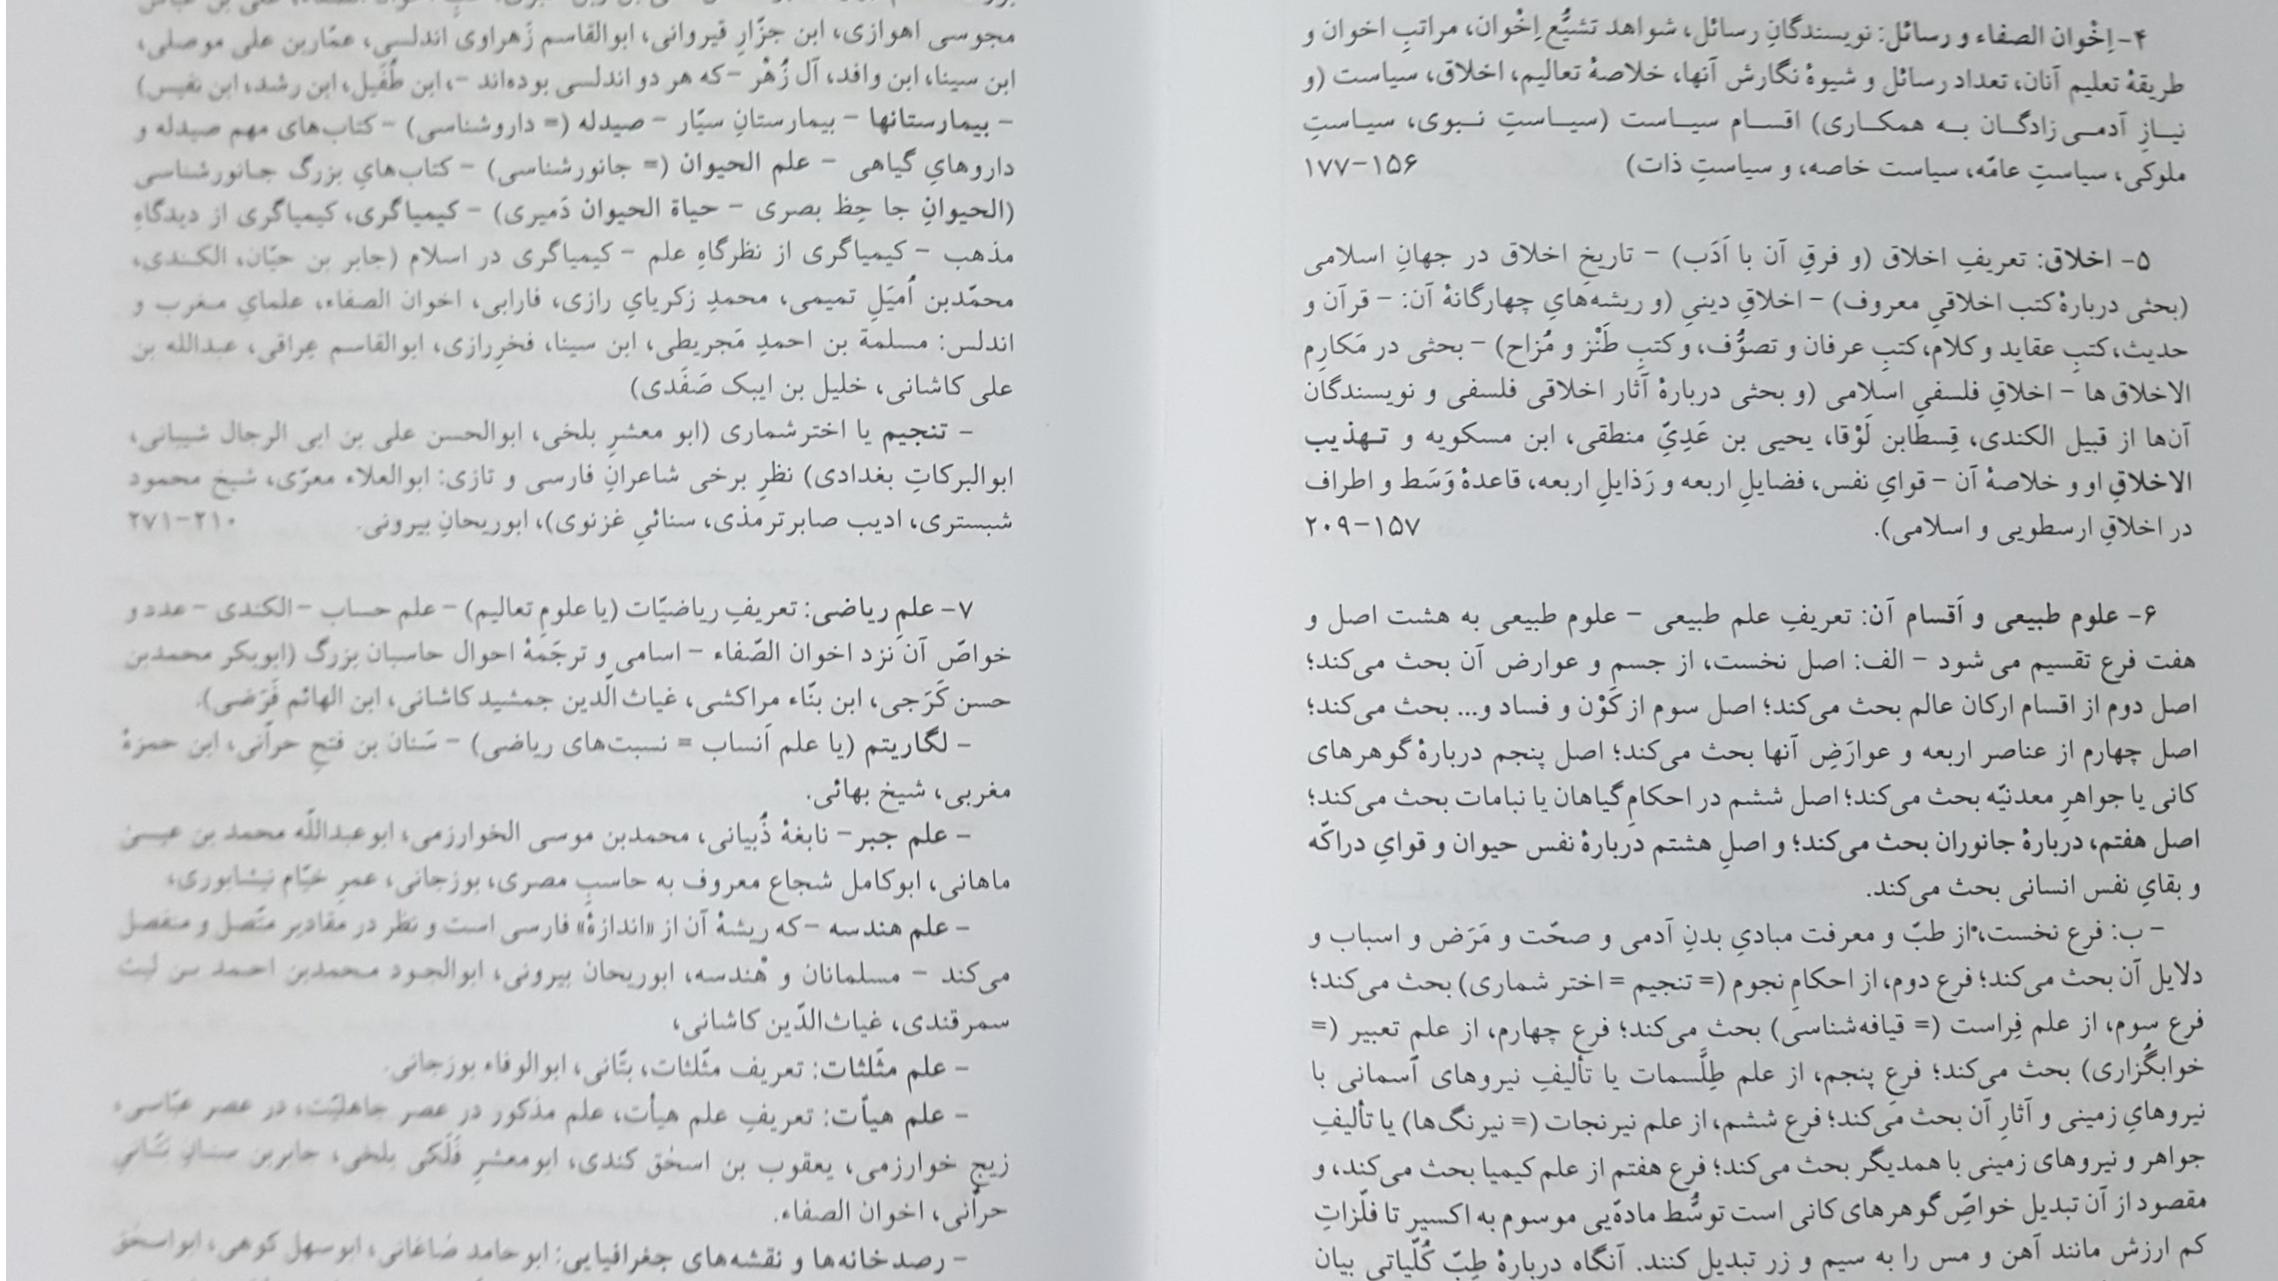 ۴- اِخْوان الصفاء و رسائل: نویسندگانِ رسائل، شواهد تشیُّعِ اِخْوان، مراتبِ اخوان و
طریقهٔ تعلیم آنان، تعداد رسائل و شیوهٔ نگارش آنها، خلاصهٔ تعالیم، اخلاق، سیاست (و
نیازِ آدمی‌زادگان به همکاری) اقسام سیاست (سیاستِ نبوی، سیاستِ
ملوکی، سیاستِ عامّه، سیاست خاصه، و سیاستِ ذات) ۱۵۶-۱۷۷
۵- اخلاق: تعریفِ اخلاق (و فرقِ آن با اَدَب) - تاریخِ اخلاق در جهانِ اسلامی
(بحثی دربارهٔ کتب اخلاقیِ معروف) - اخلاقِ دینیِ (و ریشه‌هایِ چهارگانهٔ آن: - قرآن و
حدیث، کتبِ عقاید و کلام، کتبِ عرفان و تصوُّف، و کتبِ طَنْز و مُزاح) - بحثی در مَکارِم
الاخلاق ها - اخلاقِ فلسفیِ اسلامی (و بحثی دربارهٔ آثار اخلاقی فلسفی و نویسندگان
آن‌ها از قبیل الکندی، قِسطابن لَوْقا، یحیی بن عَدِیّ منطقی، ابن مسکویه و تهذیب
الاخلاقِ او و خلاصهٔ آن - قوایِ نفس، فضایلِ اربعه و رَذایلِ اربعه، قاعدهٔ وَسَط و اطراف
در اخلاقِ ارسطویی و اسلامی). ۱۵۷-۲۰۹
۶- علوم طبیعی و اَقسام آن: تعریفِ علم طبیعی - علوم طبیعی به هشت اصل و
هفت فرع تقسیم می شود - الف: اصل نخست، از جسم و عوارض آن بحث می‌کند؛
اصل دوم از اقسام ارکان عالم بحث می‌کند؛ اصل سوم از کَوْن و فساد و... بحث می‌کند؛
اصل چهارم از عناصر اربعه و عوارَضِ آنها بحث می‌کند؛ اصل پنجم دربارهٔ گوهرهای
کانی یا جواهرِ معدنیّه بحث می‌کند؛ اصل ششم در احکامِ گیاهان یا نبامات بحث می‌کند؛
اصل هفتم، دربارهٔ جانوران بحث می‌کند؛ و اصلِ هشتم دربارهٔ نفس حیوان و قوایِ دراکّه
و بقایِ نفس انسانی بحث می‌کند.
- ب: فرع نخست، از طبّ و معرفت مبادیِ بدنِ آدمی و صحّت و مَرَض و اسباب و
دلایل آن بحث می‌کند؛ فرع دوم، از احکامِ نجوم (= تنجیم = اختر شماری) بحث می‌کند؛
فرع سوم، از علم فِراست (= قیافه‌شناسی) بحث می‌کند؛ فرع چهارم، از علم تعبیر (=
خوابگُزاری) بحث می‌کند؛ فرع پنجم، از علم طِلَّسمات یا تألیفِ نیروهای آسمانی با
نیروهایِ زمینی و آثارِ آن بحث می‌کند؛ فرع ششم، از علم نیرنجات (= نیرنگ‌ها) یا تألیفِ
جواهر و نیروهای زمینی با همدیگر بحث می‌کند؛ فرع هفتم از علم کیمیا بحث می‌کند، و
مقصود از آن تبدیل خواصّ گوهرهای کانی است توسُّط مادّه‌یی موسوم به اکسیر تا فلّزاتِ
کم ارزش مانند آهن و مس را به سیم و زر تبدیل کنند. آنگاه دربارهٔ طِبّ کُلّیاتی بیان
مجوسی اهوازی، ابن جزّارِ قیروانی، ابوالقاسم زَهراوی اندلسی، عمّاربن علی موصلی،
ابن سینا، ابن وافد، آل زُهْر - که هر دو اندلسی بوده‌اند -، ابن طُفَیل، ابن رشد، ابن نفیس)
- بیمارستانها - بیمارستانِ سیّار - صیدله (= داروشناسی) - کتاب‌های مهم صیدله و
داروهایِ گیاهی - علم الحیوان (= جانورشناسی) - کتاب‌هایِ بزرگ جانورشناسی
(الحیوانِ جا حِظ بصری - حیاة الحیوان دَمیری) - کیمیاگری، کیمیاگری از دیدگاهِ
مذهب - کیمیاگری از نظرگاهِ علم - کیمیاگری در اسلام (جابر بن حیّان، الکندی،
محمّدبن اُمیَلِ تمیمی، محمدِ زکریایِ رازی، فارابی، اخوان الصفاء، علمایِ مغرب و
اندلس: مسلمة بن احمدِ مَجریطی، ابن سینا، فخرِرازی، ابوالقاسم عِراقی، عبدالله بن
علی کاشانی، خلیل بن ایبک صَفَدی)
- تنجیم یا اخترشماری (ابو معشرِ بلخی، ابوالحسن علی بن ابی الرجال شیبانی،
ابوالبرکاتِ بغدادی) نظرِ برخی شاعرانِ فارسی و تازی: ابوالعلاء معرّی، شیخ محمود
شبستری، ادیب صابرترمذی، سنائیِ غزنوی)، ابوریحانِ بیرونی. ۲۱۰-۲۷۱
۷- علمِ ریاضی: تعریفِ ریاضیّات (یا علومِ تعالیم) - علم حساب - الکندی - عدد و
خواصّ آن نزد اخوان الصّفاء - اسامی و ترجَمهٔ احوال حاسبان بزرگ (ابوبکر محمدبن
حسن کَرَجی، ابن بنّاء مراکشی، غیاث الّدین جمشید کاشانی، ابن الهائم فَرَضی).
- لگاریتم (یا علم اَنساب = نسبت‌های ریاضی) - سَنان بن فتحِ حرّانی، ابن حمزهٔ
مغربی، شیخ بهائی.
- علم جبر - نابغهٔ ذُبیانی، محمدبن موسی الخوارزمی، ابوعبداللّه محمد بن عیسیٰ
ماهانی، ابوکامل شجاع معروف به حاسبِ مصری، بوزجانی، عمرِ خیّام نیشابوری،
- علم هندسه - که ریشهٔ آن از «اندازهٔ» فارسی است و نظر در مقادیر متّصل و منفصل
می‌کند - مسلمانان و هْندسه، ابوریحان بیرونی، ابوالجود محمدبن احمد بن لیث
سمرقندی، غیاث‌الدّین کاشانی،
- علم مثّلثات: تعریف مثّلثات، بتّانی، ابوالوفاء بوزجانی.
- علم هیأت: تعریفِ علم هیأت، علم مذکور در عصر جاهلیّت، در عصر عبّاسی،
زیج خوارزمی، یعقوب بن اسحٰق کندی، ابومعشرِ فَلَکی بلخی، جابربن سنانِ بَتّانیِ
حرّانی، اخوان الصفاء.
- رصدخانه‌ها و نقشه‌های جغرافیایی: ابوحامد صَاغانی، ابوسهل کوهی، ابواسحٰق